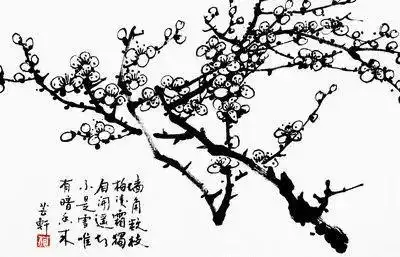 墙角数枝
梅凌霜獨
自開遥知
不是雪唯
有暗香来
轩